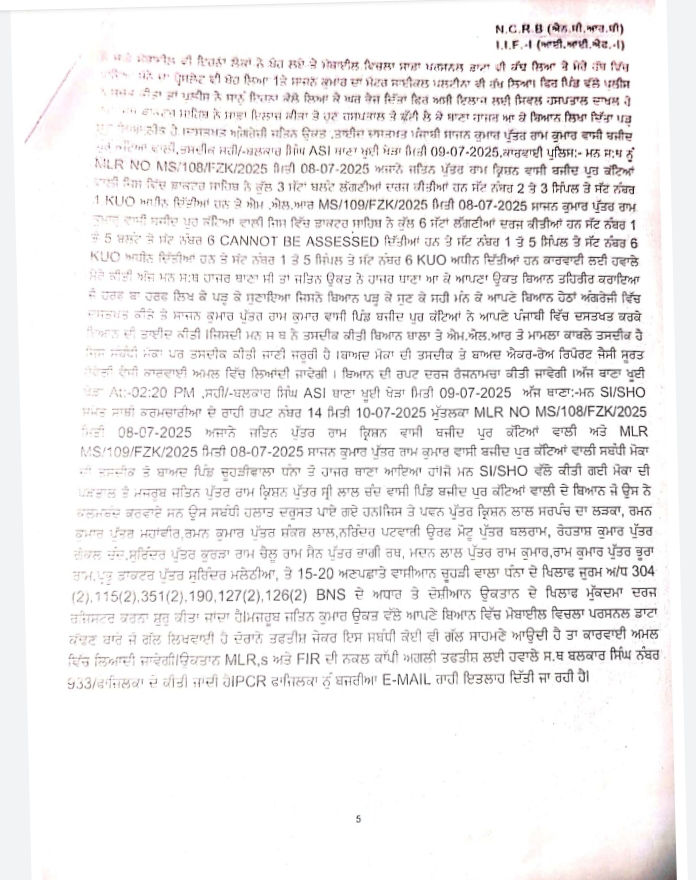 N.C.R.B (ਐਨ.ਸੀ.ਆਰ.ਬੀ)
I.I.F.-I (ਆਈ.ਆਈ.ਐਫ.-I)
ਮੋਬਾਈਲ ਵੀ ਇਹਨਾਂ ਲੋਕਾਂ ਨੇ ਖੋਹ ਲਏ ਤੇ ਮੋਬਾਈਲ ਵਿਚਲਾ ਸਾਡਾ ਪਰਸਨਲ ਡਾਟਾ ਵੀ ਕੱਢ ਲਿਆ ਤੇ ਮੇਰੇ ਹੱਥ ਵਿੱਚ
ਵੀ ਖੋਹ ਲਿਆ 1ਤੇ ਸਾਜਨ ਕੁਮਾਰ ਦਾ ਮੋਟਰ ਸਾਈਕਲ ਪਲਟੀਨਾ ਵੀ ਰੱਖ ਲਿਆ। ਫਿਰ ਪਿੰਡ ਵੱਲੋਂ ਪੁਲੀਸ
ਪੁਲੀਸ ਨੇ ਸਾਨੂੰ ਇਹਨਾਂ ਕੋਲੋਂ ਲਿਆ ਕੇ ਘਰ ਭੇਜ ਦਿੱਤਾ ਫਿਰ ਅਸੀਂ ਇਲਾਜ ਲਈ ਸਿਵਲ ਹਸਪਤਾਲ ਦਾਖਲ ਹੋ
ਡਾਕਟਰ ਸਾਹਿਬ ਨੇ ਸਾਡਾ ਇਲਾਜ ਕੀਤਾ ਤੇ ਹੁਣ ਹਸਪਤਾਲ ਤੋਂ ਛੁੱਟੀ ਲੈ ਕੇ ਥਾਣਾ ਹਾਜਰ ਆ ਕੇ ਬਿਆਨ ਲਿਖਾ ਦਿੱਤਾ ਪੜ੍ਹ
ਠੀਕ ਹੈ।ਦਸਤਖਤ ਅੰਗਰੇਜੀ ਜਤਿਨ ਉਕਤ ,ਤਾਈਦ ਦਸਤਖਤ ਪੰਜਾਬੀ ਸਾਜਨ ਕੁਮਾਰ ਪੁੱਤਰ ਰਾਮ ਕੁਮਾਰ ਵਾਸੀ ਬਜੀਦ
ਪੁਰ ਕੱਟਿਆਂ ਵਾਲੀ,ਤਸਦੀਕ ਸਹੀ/-ਬਲਕਾਰ ਸਿੰਘ ASI ਥਾਣਾ ਖੂਈ ਖੇੜਾ ਮਿਤੀ 09-07-2025,ਕਾਰਵਾਈ ਪੁਲਿਸ:- ਮਨ ਸ:ਥ ਨੂੰ
MLR NO MS/108/FZK/2025 ਮਿਤੀ 08-07-2025 ਅਜਾਨੇ ਜਤਿਨ ਪੁੱਤਰ ਰਾਮ ਕ੍ਰਿਸ਼ਨ ਵਾਸੀ ਬਜੀਦ ਪੁਰ ਕੱਟਿਆਂ
ਵਾਲੀ ਜਿਸ ਵਿੱਚ ਡਾਕਟਰ ਸਾਹਿਬ ਨੇ ਕੁੱਲ 3 ਸੱਟਾਂ ਬਲੰਟ ਲੱਗਣੀਆਂ ਦਰਜ ਕੀਤੀਆਂ ਹਨ ਸੱਟ ਨੰਬਰ 2 ਤੇ 3 ਸਿੰਪਲ ਤੇ ਸੱਟ ਨੰਬਰ
1 KUO ਅਧੀਨ ਦਿੱਤੀਆਂ ਹਨ ਤੇ ਐਮ .ਐਲ.ਆਰ MS/109/FZK/2025 ਮਿਤੀ 08-07-2025 ਸਾਜਨ ਕੁਮਾਰ ਪੁੱਤਰ ਰਾਮ
ਕੁਮਾਰ ਵਾਸੀ ਬਜੀਦ ਪੁਰ ਕੱਟਿਆਂ ਵਾਲੀ ਜਿਸ ਵਿੱਚ ਡਾਕਟਰ ਸਾਹਿਬ ਨੇ ਕੁੱਲ 6 ਸੱਟਾਂ ਲੱਗਣੀਆਂ ਦਰਜ ਕੀਤੀਆਂ ਹਨ ਸੱਟ ਨੰਬਰ 1
ਤੋਂ 5 ਬਲੰਟ ਤੇ ਸੱਟ ਨੰਬਰ 6 CANNOT BE ASSESSED ਦਿੱਤੀਆਂ ਹਨ ਤੇ ਸੱਟ ਨੰਬਰ 1 ਤੋਂ 5 ਸਿੰਪਲ ਤੇ ਸੱਟ ਨੰਬਰ 6
KUO ਅਧੀਨ ਦਿੱਤੀਆਂ ਹਨ ਤੇ ਸੱਟ ਨੰਬਰ 1 ਤੋਂ 5 ਸਿੰਪਲ ਤੇ ਸੱਟ ਨੰਬਰ 6 KUO ਅਧੀਨ ਦਿੱਤੀਆਂ ਹਨ ਕਾਰਵਾਈ ਲਈ ਹਵਾਲੇ
ਮੇਰੇ ਕੀਤੀ ਅੱਜ ਮਨ ਸ:ਥ ਹਾਜਰ ਥਾਣਾ ਸੀ ਤਾਂ ਜਤਿਨ ਉਕਤ ਨੇ ਹਾਜਰ ਥਾਣਾ ਆ ਕੇ ਆਪਣਾ ਉਕਤ ਬਿਆਨ ਤਹਿਰੀਰ ਕਰਾਇਆ
ਜੋ ਹਰਫ ਬਾ ਹਰਫ ਲਿਖ ਕੇ ਪੜ੍ਹ ਕੇ ਸੁਣਾਇਆ ਜਿਸਨੇ ਬਿਆਨ ਪੜ੍ਹ ਕੇ ਸੁਣ ਕੇ ਸਹੀ ਮੰਨ ਕੇ ਆਪਣੇ ਬਿਆਨ ਹੇਠਾਂ ਅੰਗਰੇਜੀ ਵਿੱਚ
ਦਸਤਖਤ ਕੀਤੇ ਤੇ ਸਾਜਨ ਕੁਮਾਰ ਪੁੱਤਰ ਰਾਮ ਕੁਮਾਰ ਵਾਸੀ ਪਿੰਡ ਬਜੀਦ ਪੁਰ ਕੱਟਿਆਂ ਨੇ ਆਪਣੇ ਪੰਜਾਬੀ ਵਿੱਚ ਦਸਤਖਤ ਕਰਕੇ
ਬਿਆਨ ਦੀ ਤਾਈਦ ਕੀਤੀ।ਜਿਸਦੀ ਮਨ ਸ ਥ ਨੇ ਤਸਦੀਕ ਕੀਤੀ ਬਿਆਨ ਬਾਲਾ ਤੇ ਐਮ.ਐਲ.ਆਰ ਤੋਂ ਮਾਮਲਾ ਕਾਬਲੇ ਤਸਦੀਕ ਹੈ
ਜਿਸ ਸਬੰਧੀ ਮੌਕਾ ਪਰ ਤਸਦੀਕ ਕੀਤੀ ਜਾਣੀ ਜਰੂਰੀ ਹੈ।ਬਾਅਦ ਮੌਕਾ ਦੀ ਤਸਦੀਕ ਤੇ ਬਾਅਦ ਐਕਰ-ਰੇਅ ਰਿਪੋਰਟ ਜੈਸੀ ਸੂਰਤ
ਹੋਵੇਗੀ ਵੈਸੀ ਕਾਰਵਾਈ ਅਮਲ ਵਿੱਚ ਲਿਆਂਦੀ ਜਾਵੇਗੀ। ਬਿਆਨ ਦੀ ਰਪਟ ਦਰਜ ਰੋਜਨਾਮਚਾ ਕੀਤੀ ਜਾਵੇਗੀ।ਅੱਜ ਥਾਣਾ ਖੂਈ
ਖੇੜਾ At:-02:20 PM ,ਸਹੀ/-ਬਲਕਾਰ ਸਿੰਘ ASI ਥਾਣਾ ਖੂਈ ਖੇੜਾ ਮਿਤੀ 09-07-2025 ਅੱਜ ਥਾਣਾ:-ਮਨ SI/SHO
ਸਮੇਤ ਸਾਥੀ ਕਰਮਚਾਰੀਆਂ ਦੇ ਰਾਹੀ ਰਪਟ ਨੰਬਰ 14 ਮਿਤੀ 10-07-2025 ਮੁੱਤਲਕਾ MLR NO MS/108/FZK/2025
ਮਿਤੀ 08-07-2025 ਅਜਾਨੇ ਜਤਿਨ ਪੁੱਤਰ ਰਾਮ ਕ੍ਰਿਸ਼ਨ ਵਾਸੀ ਬਜੀਦ ਪੁਰ ਕੱਟਿਆਂ ਵਾਲੀ ਅਤੇ MLR
MS/109/FZK/2025 ਮਿਤੀ 08-07-2025 ਸਾਜਨ ਕੁਮਾਰ ਪੁੱਤਰ ਰਾਮ ਕੁਮਾਰ ਵਾਸੀ ਬਜੀਦ ਪੁਰ ਕੱਟਿਆਂ ਵਾਲੀ ਸਬੰਧੀ ਮੌਕਾ
ਦੀ ਤਸਦੀਕ ਤੋਂ ਬਾਅਦ ਪਿੰਡ ਚੂਹੜੀਵਾਲਾ ਧੰਨਾ ਤੋਂ ਹਾਜਰ ਥਾਣਾ ਆਇਆ ਹਾਂ।ਜੋ ਮਨ SI/SHO ਵੱਲੋਂ ਕੀਤੀ ਗਈ ਮੌਕਾ ਦੀ
ਪੜਤਾਲ ਤੋਂ ਮਜਰੂਬ ਜਤਿਨ ਪੁੱਤਰ ਰਾਮ ਕ੍ਰਿਸ਼ਨ ਪੁੱਤਰ ਸ੍ਰੀ ਲਾਲ ਚੰਦ ਵਾਸੀ ਪਿੰਡ ਬਜੀਦ ਪੁਰ ਕੱਟਿਆਂ ਵਾਲੀ ਦੇ ਬਿਆਨ ਜੋ ਉਸ ਨੇ
ਕਲਮਬੰਦ ਕਰਵਾਏ ਸਨ ਉਸ ਸਬੰਧੀ ਹਲਾਤ ਦਰੁਸਤ ਪਾਏ ਗਏ ਹਨ।ਜਿਸ ਤੇ ਪਵਨ ਪੁੱਤਰ ਕ੍ਰਿਸ਼ਨ ਲਾਲ ਸਰਪੰਚ ਦਾ ਲੜਕਾ, ਰਮਨ
ਕੁਮਾਰ ਪੁੱਤਰ ਮਹਾਂਵੀਰ,ਰਮਨ ਕੁਮਾਰ ਪੁੱਤਰ ਸ਼ੰਕਰ ਲਾਲ,ਨਰਿੰਦਰ ਪਟਵਾਰੀ ਉਰਫ ਮੋਟੂ ਪੁੱਤਰ ਬਲਰਾਮ, ਰੋਹਤਾਸ਼ ਕੁਮਾਰ ਪੁੱਤਰ
ਚੰਦ,ਸੁਰਿੰਦਰ ਪੁੱਤਰ ਕੁਰੜਾ ਰਾਮ ਚੇਲੂ ਰਾਮ ਸੈਨ ਪੁੱਤਰ ਭਾਗੀ ਰਥ, ਮਦਨ ਲਾਲ ਪੁੱਤਰ ਰਾਮ ਕੁਮਾਰ,ਰਾਮ ਕੁਮਾਰ ਪੁੱਤਰ ਭੂਰਾ
ਰਾਮ,ਪ੍ਰਭੂ ਡਾਕਟਰ ਪੁੱਤਰ ਸੁਰਿੰਦਰ ਮਲੇਠੀਆ, ਤੇ 15-20 ਅਣਪਛਾਤੇ ਵਾਸੀਆਨ ਚੂਹੜੀ ਵਾਲਾ ਧੰਨਾ ਦੇ ਖਿਲਾਫ ਜੁਰਮ ਅ/ਧ 304
(2),115(2),351(2),190,127(2),126(2) BNS ਦੇ ਅਧਾਰ ਤੇ ਦੋਸ਼ੀਆਨ ਉਕਤਾਨ ਦੇ ਖਿਲਾਫ ਮੁੱਕਦਮਾ ਦਰਜ
ਰਜਿਸਟਰ ਕਰਨਾ ਸ਼ੁਰੂ ਕੀਤਾ ਜਾਂਦਾ ਹੈ।ਮਜਰੂਬ ਜਤਿਨ ਕੁਮਾਰ ਉਕਤ ਵੱਲੋਂ ਆਪਣੇ ਬਿਆਨ ਵਿੱਚ ਮੋਬਾਈਲ ਵਿਚਲਾ ਪਰਸਨਲ ਡਾਟਾ
ਕੱਢਣ ਬਾਰੇ ਜੋ ਗੱਲ ਲਿਖਵਾਈ ਹੈ ਦੌਰਾਨੇ ਤਫਤੀਸ਼ ਜੇਕਰ ਇਸ ਸਬੰਧੀ ਕੋਈ ਵੀ ਗੱਲ ਸਾਹਮਣੇ ਆਉਂਦੀ ਹੈ ਤਾਂ ਕਾਰਵਾਈ ਅਮਲ
ਵਿੱਚ ਲਿਆਂਦੀ ਜਾਵੇਗੀ।ਉਕਤਾਨ MLR,s ਅਤੇ FIR ਦੀ ਨਕਲ ਕਾਪੀ ਅਗਲੀ ਤਫਤੀਸ਼ ਲਈ ਹਵਾਲੇ ਸ.ਥ ਬਲਕਾਰ ਸਿੰਘ ਨੰਬਰ
933/ਫਾਜਿਲਕਾ ਦੇ ਕੀਤੀ ਜਾਂਦੀ ਹੈ।PCR ਫਾਜਿਲਕਾ ਨੂੰ ਬਜਰੀਆ E-MAIL ਰਾਹੀ ਇਤਲਾਹ ਦਿੱਤੀ ਜਾ ਰਹੀ ਹੈ।
5